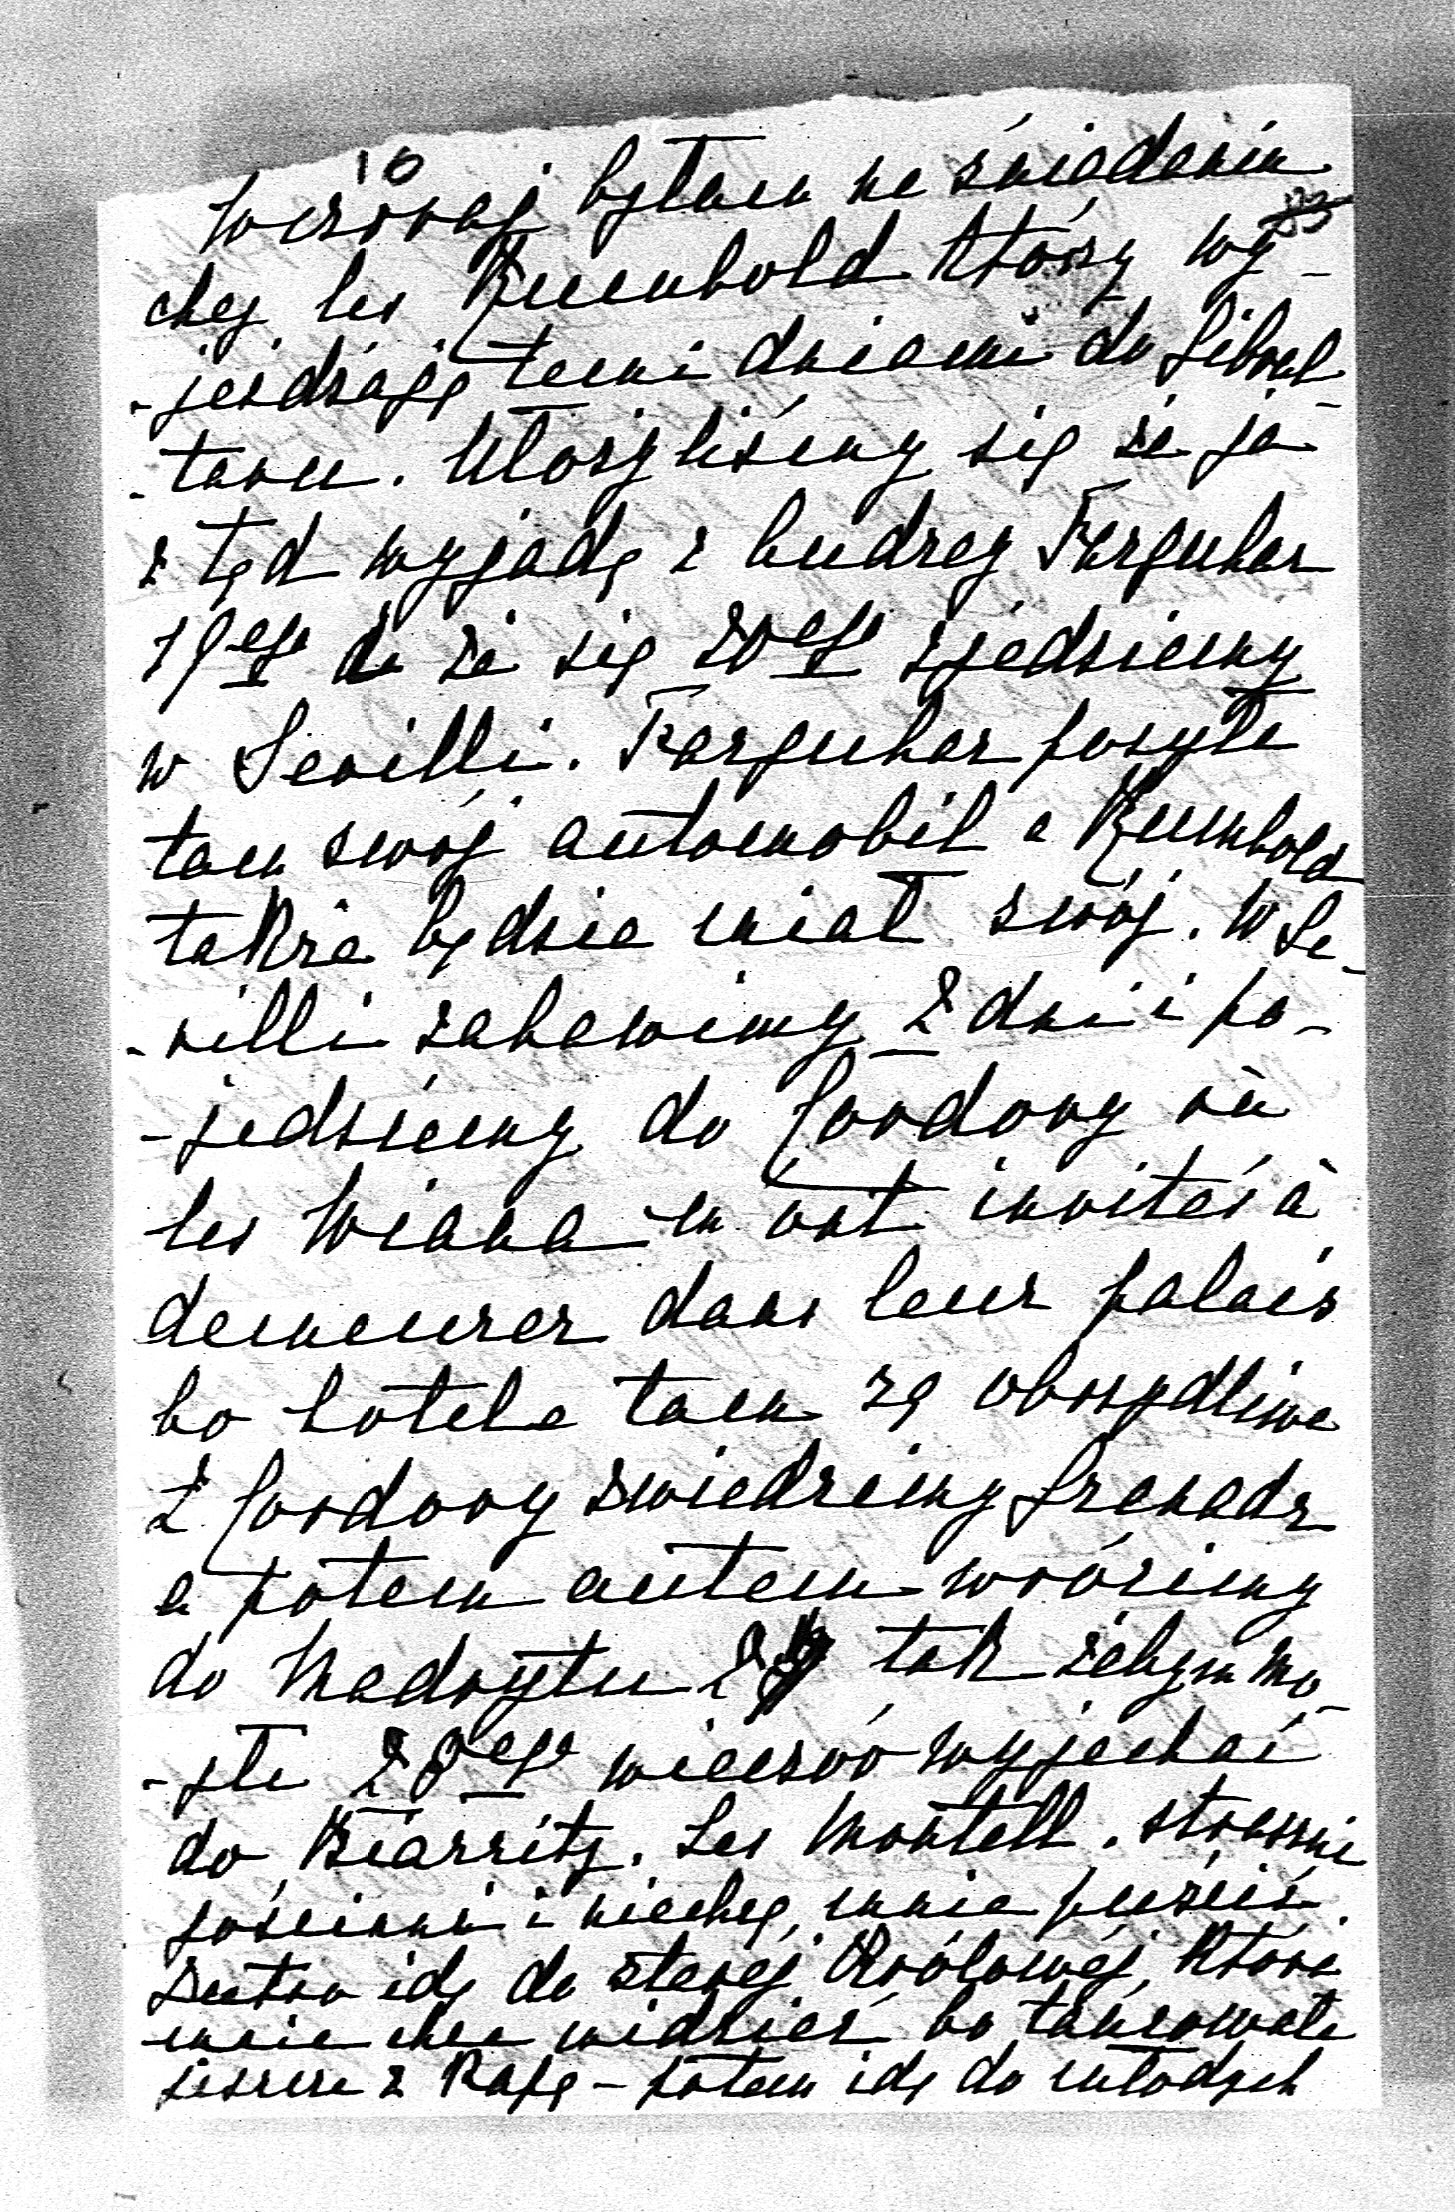 10
Wczoraj byłam na śniadaniu
83
chez les Rumbold którzy wy-
-jeżdżają temi dniami do Gibral-
-taru. Ułożyliśmy się że ja
z tąd wyjadę z Audrey Farquhar
19ego że się 20ego zjedziemy
w Sevilli. Farquhar posyła
tam swój automobil a Rumbold
także będzie miał swój. W Se-
-villi zabawimy 2 dni i po-
-jedziemy do Cordovy où
les Wiana m'ont invités à
demeurer dans leur palais
bo hotele tam są obrzydliwe
Z Cordovy zwiedzimy Grenadę
a potem autem wrócimy
do Madrytu tak żebym mo-
-gła 28ego wieczór wyjechać
do Biarritz. Les Montell. strasznie
gościnni i niechcą mnie puścić.
Jutro idę do starej Królowej, która
mnie chce widzieć bo tańcowała
jeszcze z Papą – potem idę do młodych